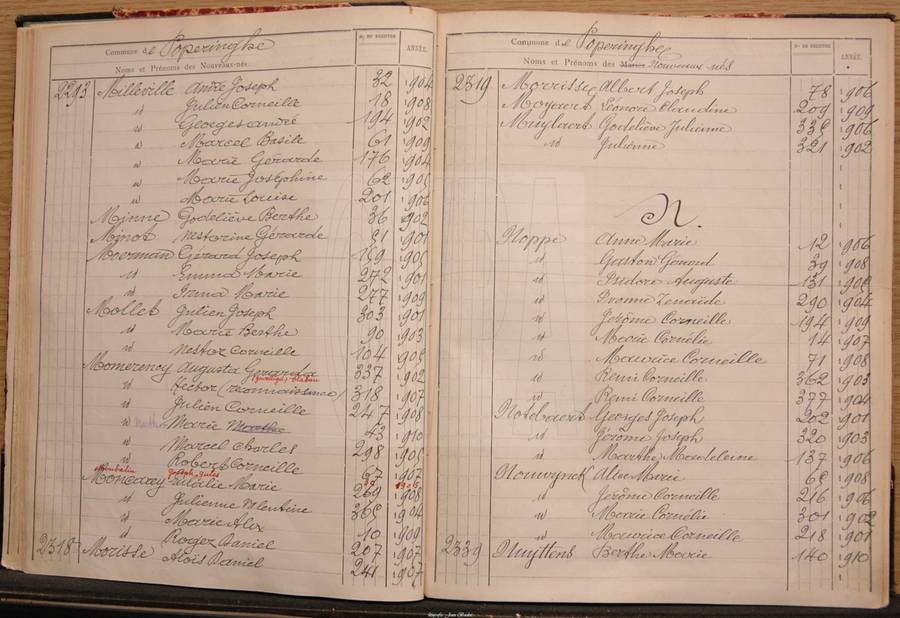 Commune de Poperinghe
Noms et Prénoms des Nouveaux-nés.
Nos DE REGISTRE
ANNÉE.
2293 Milleville André Joseph 32 1904
id Julien Corneille 18 1908
id Georges André 194 1902
id Marcel Basile 61 1909
id Marie Gérarde 176 1904
id Marie Joséphine 62 1905
id Marie Louise 201 1906
Minne Godeliève Berthe 36 1902
Minot Nestorine Gérarde 51 1901
Moerman Gérard Joseph 159 1905
id Emma Marie 272 1901
id Irma Marie 277 1909
Mollet Julien Joseph 303 1901
id Marie Berthe 90 1903
id Nestor Corneille 104 1905
Momerency Augusta Gerarda 337 1902
id Hector (reconnaissance) 318 1907
id Julien Corneille 247 1908
id Marie Marthe 43 1910
id Marcel Charles 298 1905
id Robert Corneille 67 1907
Joseph Jules 1905
Moncarey Eulalie Marie 269 1908
id Julienne Valentine 365 1904
id Marie Alix 10 1909
id Roger Daniel 207 1907
2318 Morisse Aloïs Daniel 241 1907
Commune de Poperinghe
Noms et Prénoms des Mariés Nouveaux nés
Nos DE REGISTRE
ANNÉE.
2319 Morrisse Albert Joseph 78 1906
Moyaert Leonore Claudine 209 1909
Muylaert Godeliève Julienne 335 1906
id Julienne 321 1902
N.
Noppe Anne Marie 12 1906
id Gaston Gérard 39 1908
id Isidore Auguste 131 1905
id Ivonne Zenaïde 290 1904
id Jérôme Corneille 194 1909
id Marie Cornélie 14 1907
id Maurice Corneille 71 1908
id Remi Corneille 362 1903
id Remi Corneille 377 1904
Notebaert Georges Joseph 202 1901
id Jérôme Joseph 320 1903
id Marthe Madeleine 137 1906
Nouwynck Alice Marie 65 1908
id Jérôme Corneille 216 1906
id Marie Cornélie 301 1902
id Maurice Corneille 218 1901
2339 Nuyttens Berthe Marie 140 1910